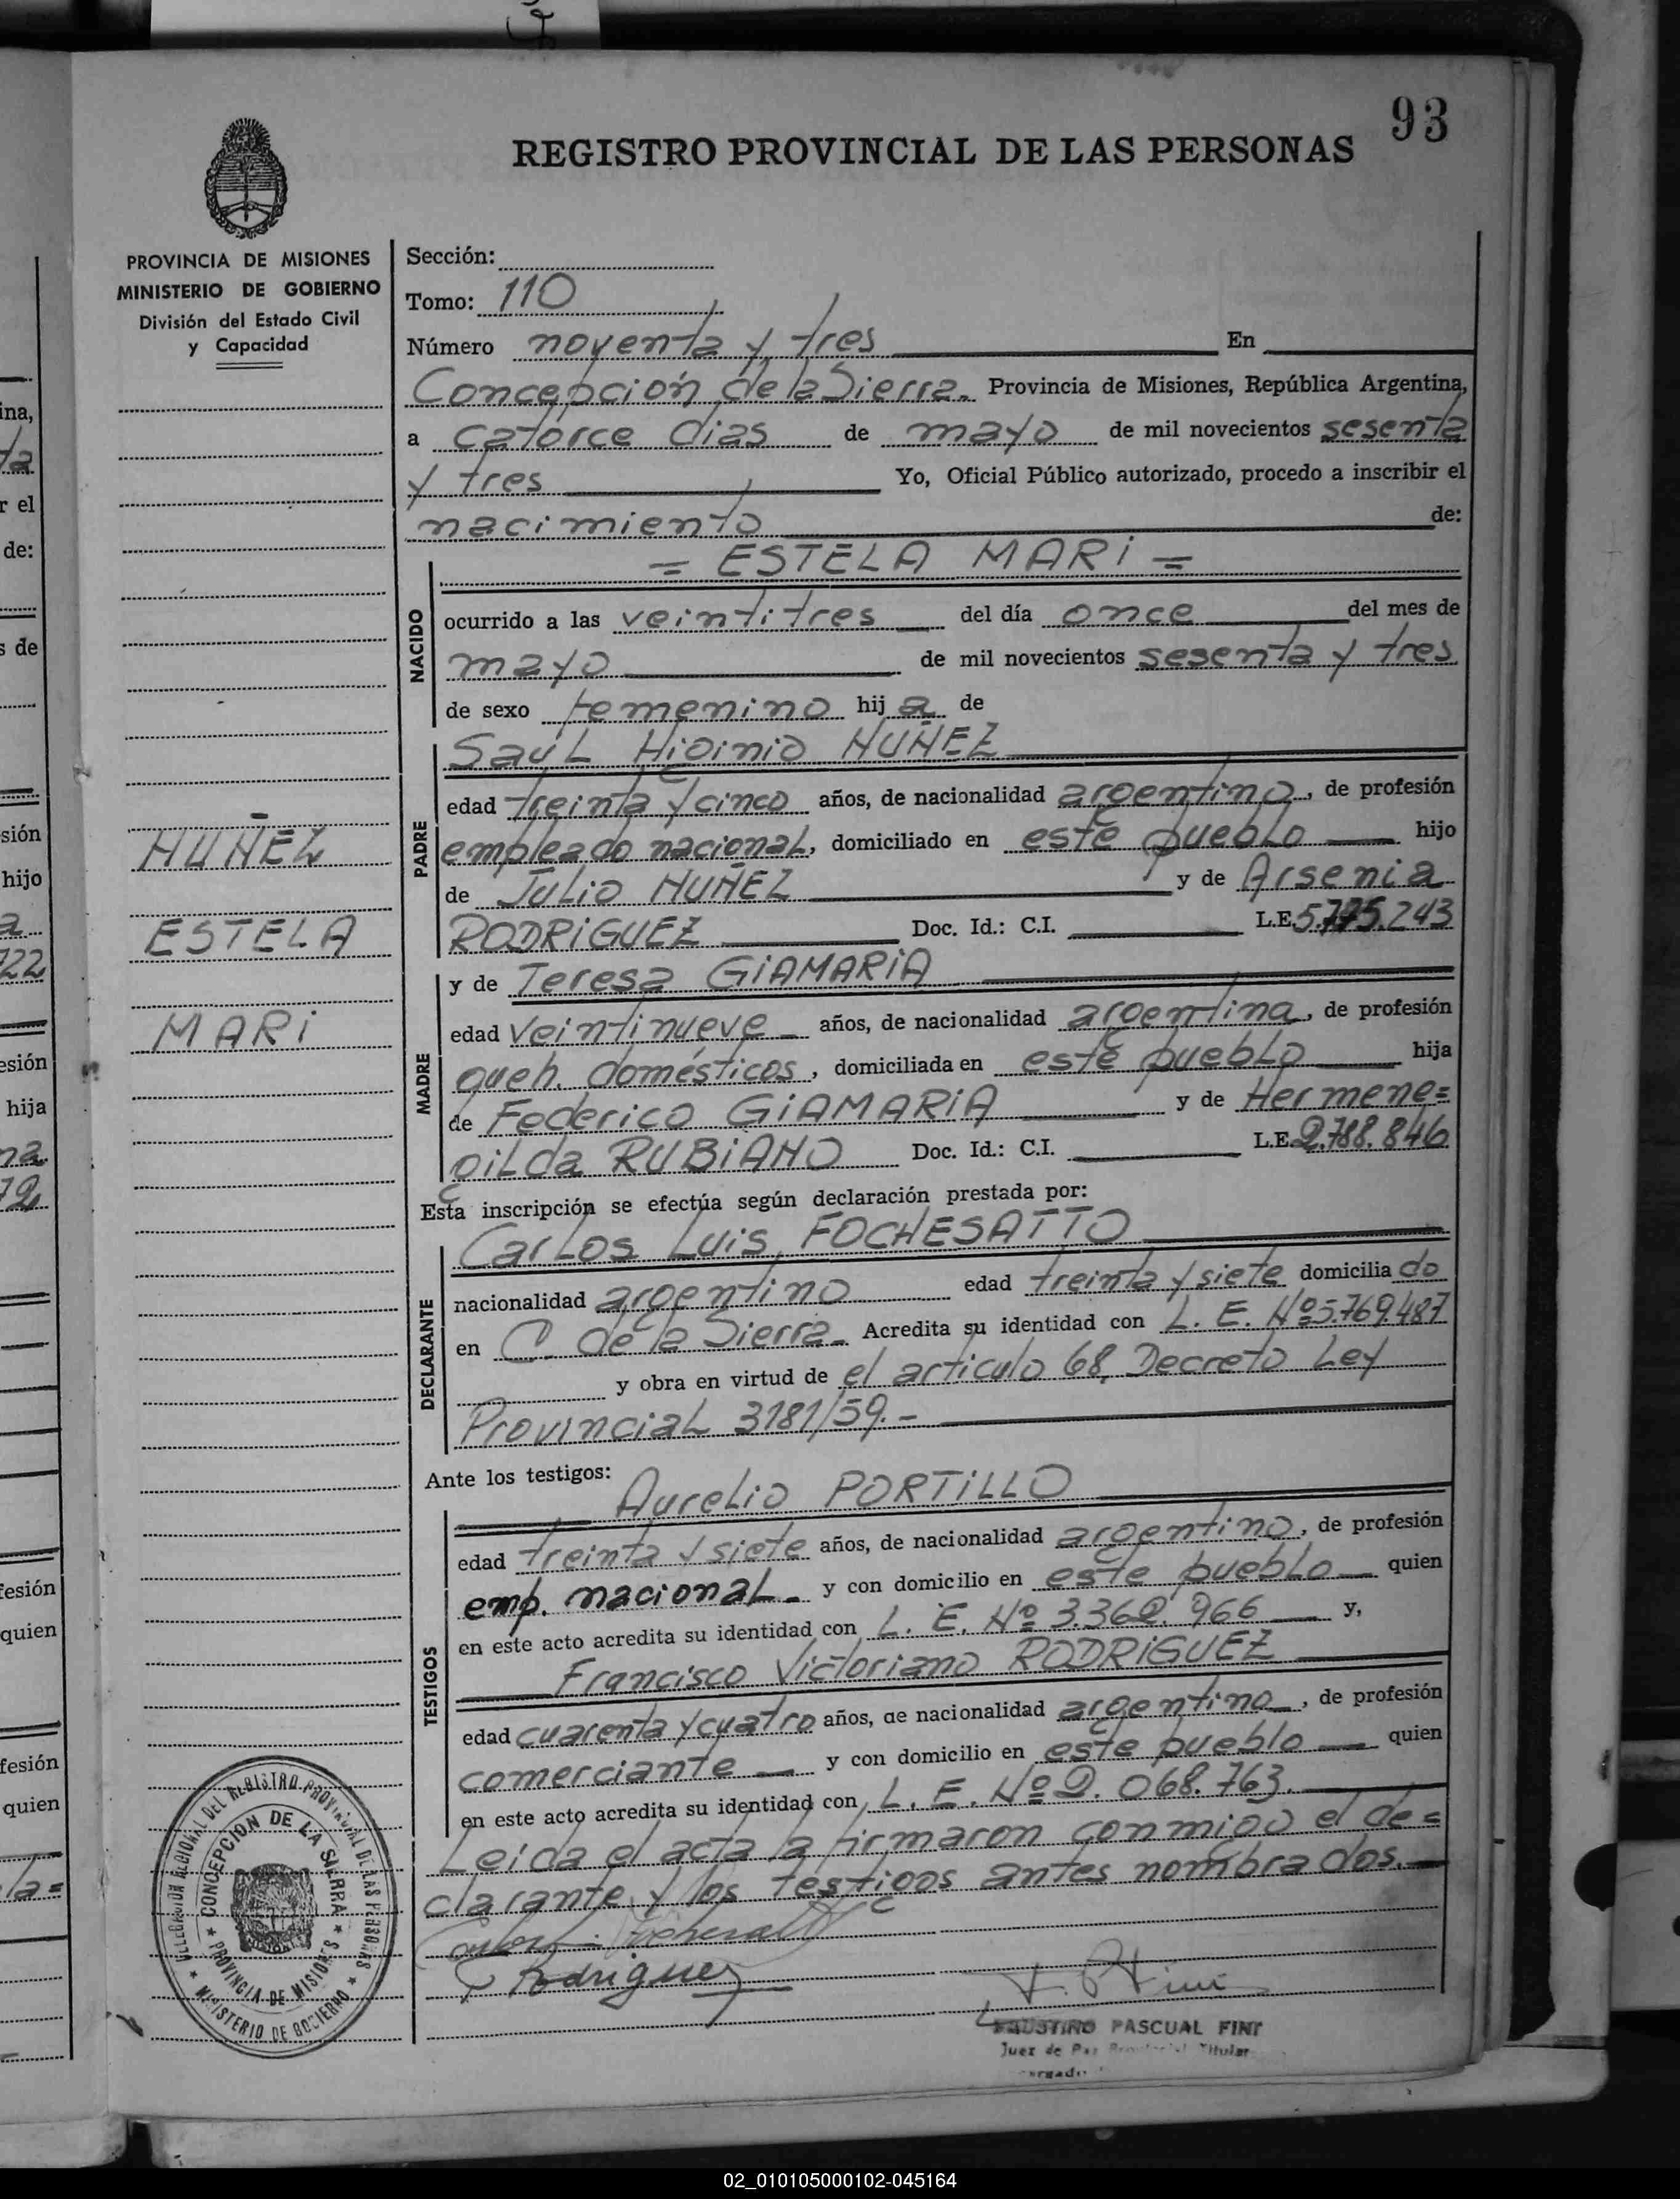 93
REGISTRO PROVINCIAL DE LAS PERSONAS
PROVINCIA DE MISIONES
MINISTERIO DE GOBIERNO
División del Estado Civil
y Capacidad
Sección:
Tomo: 110
Número noventa y tres En
Concepción de la Sierra. Provincia de Misiones, República Argentina,
a catorce dias de mayo de mil novecientos sesenta
y tres Yo, Oficial Público autorizado, procedo a inscribir el
nacimiento de:
= ESTELA MARi =
NACIDO
ocurrido a las veintitres del día once del mes de
mayo de mil novecientos sesenta y tres
de sexo femenino hij a de
Saúl Higinio NUÑEZ
PADRE
edad treinta y cinco años, de nacionalidad argentino, de profesión
empleado nacional, domiciliado en este pueblo hijo
de Julio NUÑEZ y de Arsenia
RODRiGUEZ Doc. Id.: C.I. L.E. 5.775.243
y de Teresa GiAMARiA
MADRE
edad veintinueve años, de nacionalidad argentina, de profesión
queh. domésticos, domiciliada en este pueblo hija
de Federico GiAMARiA y de Hermene=
gilda RUBiANO Doc. Id.: C.I. L.E. 2.788.846
Esta inscripción se efectúa según declaración prestada por:
Carlos Luis FOCHESATTO
DECLARANTE
nacionalidad argentino edad treinta y siete domicilia do
en C. de la Sierra. Acredita su identidad con L. E. Nº 5.769.487
y obra en virtud de el articulo 68, Decreto Ley
Provincial 3181/59.-
Ante los testigos:
Aurelio PORTiLLO
TESTIGOS
edad treinta y siete años, de nacionalidad argentino, de profesión
emp. nacional. y con domicilio en este pueblo quien
en este acto acredita su identidad con L. E. Nº 3.362.966 y,
Francisco Victoriano RODRiGUEZ
edad cuarenta y cuatro años, de nacionalidad argentino, de profesión
comerciante y con domicilio en este pueblo quien
en este acto acredita su identidad con L. E. Nº 2.068.763.
Leida el acta la firmaron conmigo el de=
clarante y los testigos antes nombrados.
Rodriguez
FAUSTINO PASCUAL FINI
Juez de Paz Titular
NUÑEZ
ESTELA
MARi
DEL REGISTRO PROVINCIAL DE LAS PERSONAS
CONCEPCION DE LA SIERRA
PROVINCIA DE MISIONES
MINISTERIO DE GOBIERNO
02_010105000102-045164